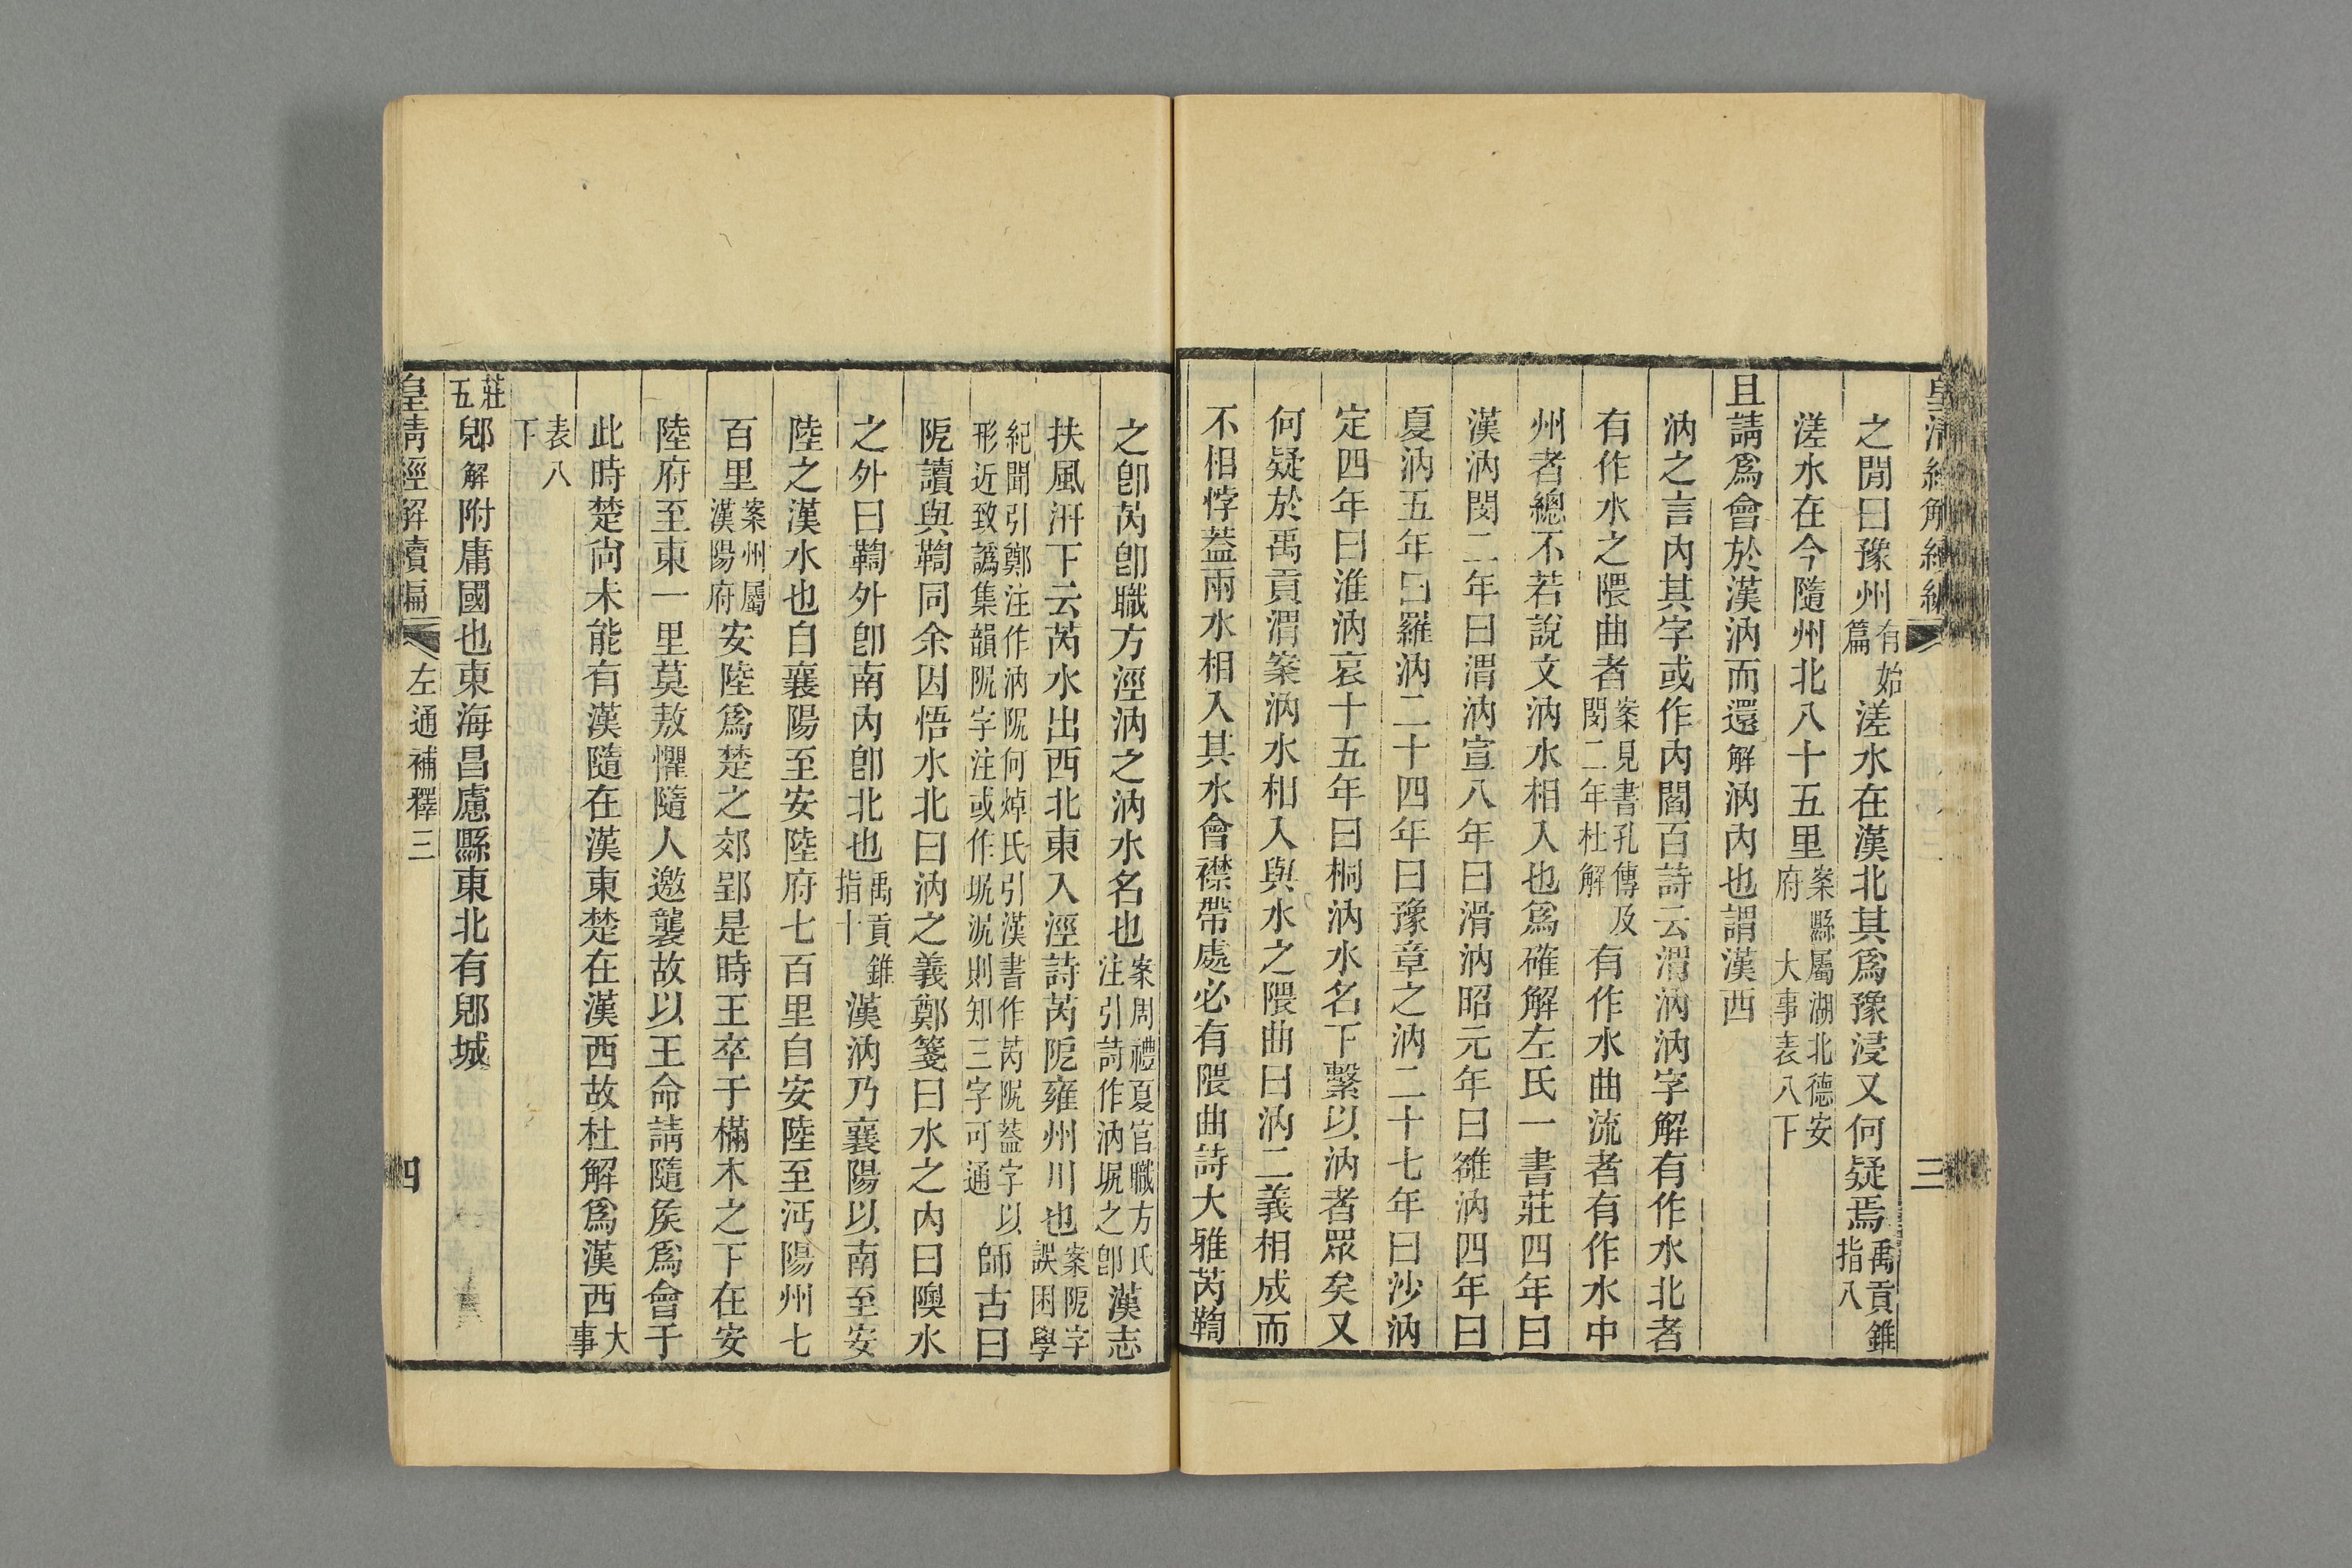 皇清經解續編
三
之閒曰豫州有始篇溠水在漢北其爲豫浸又何疑焉禹貢錐指八
溠水在今隨州北八十五里案縣屬湖北德安府 大事表八下
且請爲會於漢汭而還解汭內也謂漢西
汭之言內其字或作內閻百詩云渭汭汭字解有作水北者
有作水之隈曲者案見書孔傳及閔二年杜解有作水曲流者有作水中
州者總不若說文汭水相入也爲確解左氏一書莊四年曰
漢汭閔二年曰渭汭宣八年曰滑汭昭元年曰雒汭四年曰
夏汭五年曰羅汭二十四年曰豫章之汭二十七年曰沙汭
定四年曰淮汭哀十五年曰桐汭水名下繫以汭者眾矣又
何疑於禹貢渭案汭水相入與水之隈曲曰汭二義相成而
不相悖葢兩水相入其水會襟帶處必有隈曲詩大雅芮鞫
之卽芮卽職方涇汭之汭水名也案周禮夏官職方氏注引詩作汭坭之卽漢志
扶風汧下云芮水出西北東入涇詩芮阸雍州川也案阸字誤困學
紀聞引鄭注作汭阸何焯氏引漢書作芮阸葢字以形近致譌集韻阸字注或作坭泥則知三字可通師古曰
阸讀與鞫同余因悟水北曰汭之義鄭箋曰水之內曰隩水
之外曰鞫外卽南內卽北也禹貢錐指十漢汭乃襄陽以南至安
陸之漢水也自襄陽至安陸府七百里自安陸至沔陽州七
百里案州屬漢陽府安陸爲楚之郊郢是時王卒于樠木之下在安
陸府至東一里莫敖懼隨人邀襲故以王命請隨矦爲會于
此時楚尙未能有漢隨在漢東楚在漢西故杜解爲漢西大事
表八下
莊五郳解附庸國也東海昌慮縣東北有郳城
皇清經解續編
左通補釋三
四